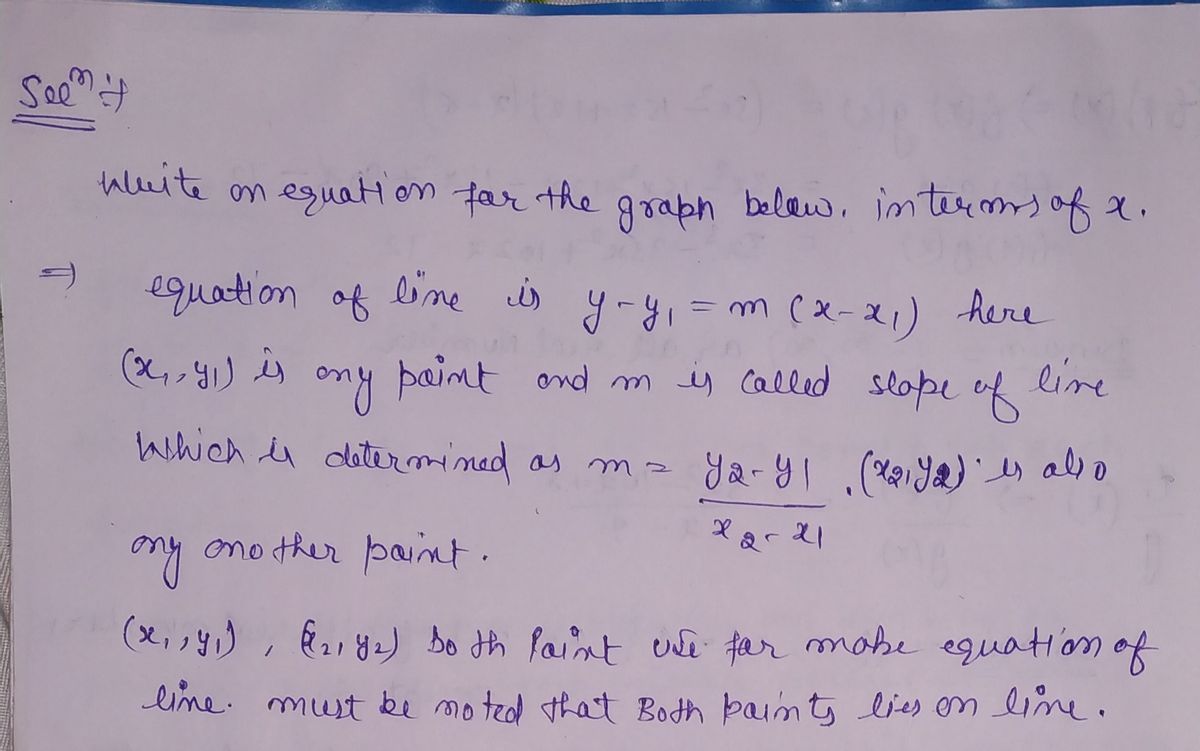 Solⁿ :-
Write an equation for the graph below. in terms of x.
⇒ equation of line is y-y₁ = m (x-x₁) here
(x₁, y₁) is any point and m is called slope of line
Which is determined as m = y₂-y₁ / x₂-x₁ . (x₂, y₂) is also
any another point.
(x₁, y₁) , (x₂, y₂) both Point use for make equation of
line. must be noted that Both points lies on line.